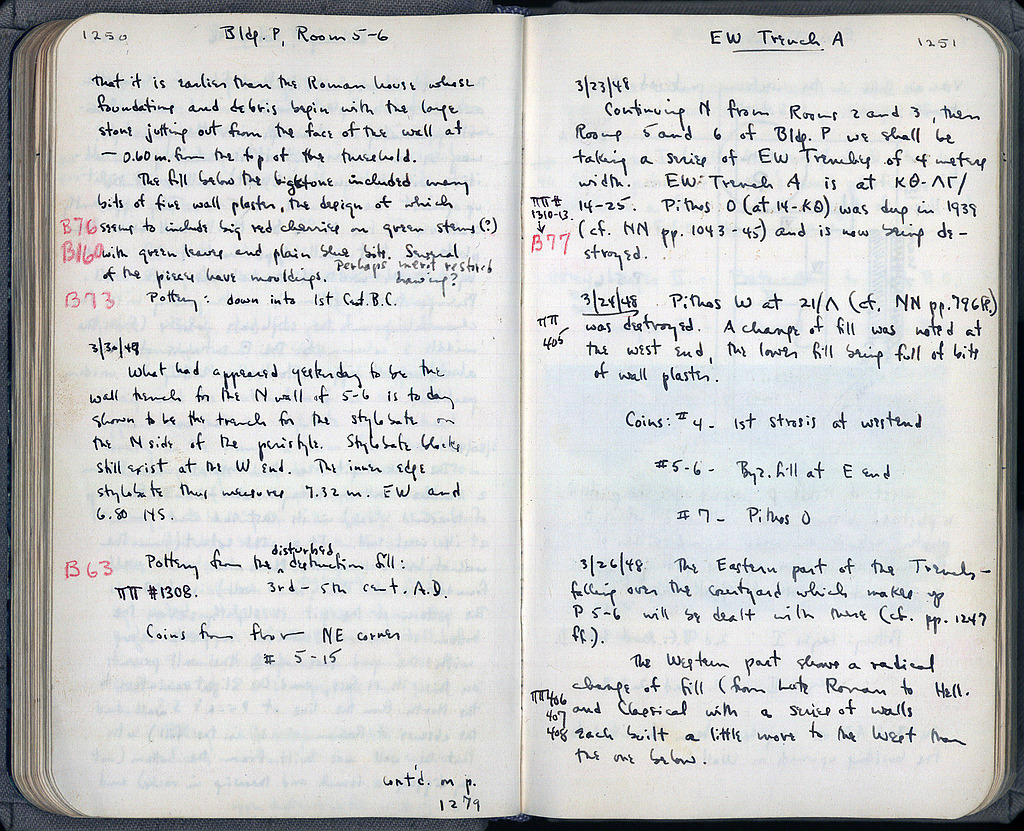 1250 Bldg. P, Room 5-6
that it is earlier than the Roman house whose
foundations and debris begin with the large
stone jutting out from the face of the wall at
– 0.60 m. from the top of the threshold.
The fill below the big stone included many
bits of fine wall plaster, the design of which
B76 seems to include big red cherries on green stems (?)
B160 with green leaves and plain blue bits. Several
of the pieces have mouldings. Perhaps merit restored
drawing?
B73 Pottery: down into 1st Cent. B.C.
3/30/48
What had appeared yesterday to be the
wall trench for the N wall of 5-6 is to day
shown to be the trench for the stylobate on
the N side of the peristyle. Stylobate blocks
still exist at the W end. The inner edge
stylobate thus measures 7.32 m. EW and
6.80 NS.
disturbed
B63 Pottery from the destruction fill:
ΠΠ #1308. 3rd - 5th cent. A.D.
Coins from floor – NE corner
# 5-15
cont'd. on p.
1279
EW Trench A 1251
3/23/48
Continuing N from Rooms 2 and 3, then
Rooms 5 and 6 of Bldg. P we shall be
taking a series of EW Trenches of 4 meters
width. EW Trench A is at ΚΘ-ΛΓ/
ΠΠ #
1310-13.
14-25. Pithos O (at 14-ΚΘ) was dug in 1939
B77 (cf. NN pp. 1043-45) and is now being de-
stroyed.
3/24/48 Pithos W at 21/Λ (cf. NN pp. 796ff.)
ΠΠ
405
was destroyed. A change of fill was noted at
the west end, the lower fill being full of bits
of wall plaster.
Coins: # 4 - 1st strosis at west end
#5-6 - Byz. fill at E end
# 7 - Pithos O
3/26/48: The Eastern part of the Trench –
falling over the courtyard which makes up
P 5-6 will be dealt with there (cf. pp. 1247
ff.).
The Western part shows a radical
change of fill (from Late Roman to Hell.
ΠΠ 406
407
408
and Classical with a series of walls
each built a little more to the West than
the one below.